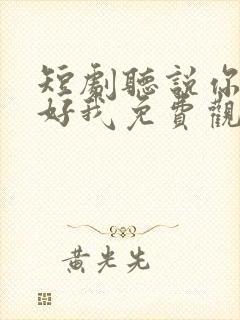 短劇聽說你
好我免費觀
黃光先